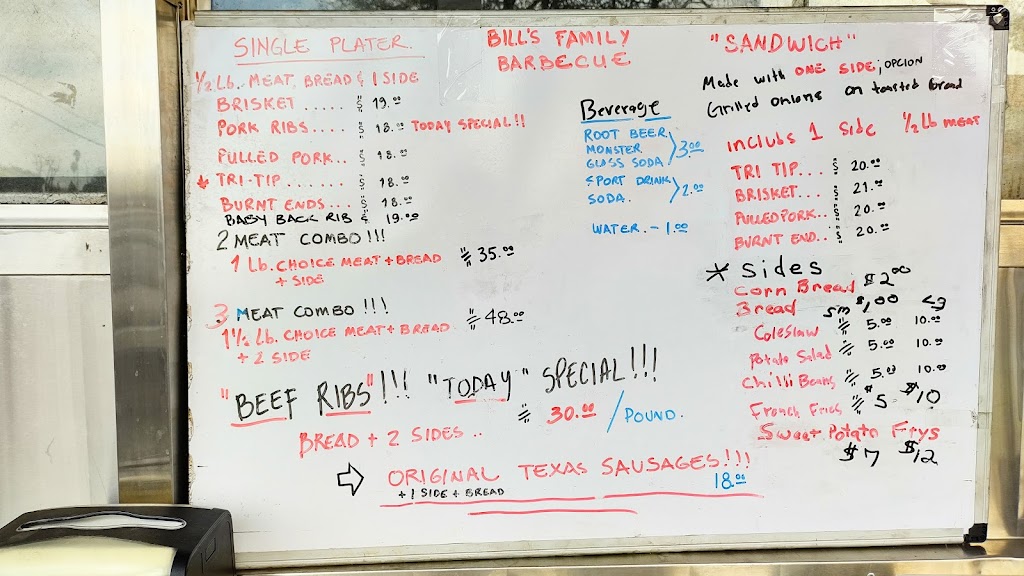 SINGLE PLATER.
1/2 Lb. MEAT, BREAD & 1 SIDE
BRISKET ..... $ 19.00
PORK RIBS.... $ 18.00 TODAY SPECIAL!!
PULLED PORK.. $ 18.00
TRI-TIP....... $ 18.00
BURNT ENDS... $ 18.00
BABY BACK RIB $ 19.00
2 MEAT COMBO!!!
1 Lb. CHOICE MEAT + BREAD $ 35.00
+ SIDE
3 MEAT COMBO!!!
1 1/2 Lb. CHOICE MEAT + BREAD $ 48.00
+ 2 SIDE
BILL'S FAMILY
BARBECUE
Beverage
ROOT BEER
MONSTER
GLASS SODA 3.00
SPORT DRINK
SODA. 2.00
WATER. - 1.00
"SANDWICH"
Made with ONE SIDE; OPCION
Grilled onions on toasted bread
inclubs 1 Side 1/2 Lb MEAT
TRI TIP... $ 20.00
BRISKET... $ 21.00
PULLED PORK.. $ 20.00
BURNT END.. $ 20.00
* Sides
Corn Bread $2.00
Bread $1.00
sm Lg
Coleslaw $ 5.00 10.00
Potato Salad $ 5.00 10.00
Chilli Beans $ 5.00 10.00
French Fries $ 5 $10
Sweet Potato Frys
$7 $12
"BEEF RIBS"!!! "TODAY" SPECIAL!!!
$ 30.00 / POUND.
BREAD + 2 SIDES ..
ORIGINAL TEXAS SAUSAGES!!!
+ 1 SIDE + BREAD 18.00